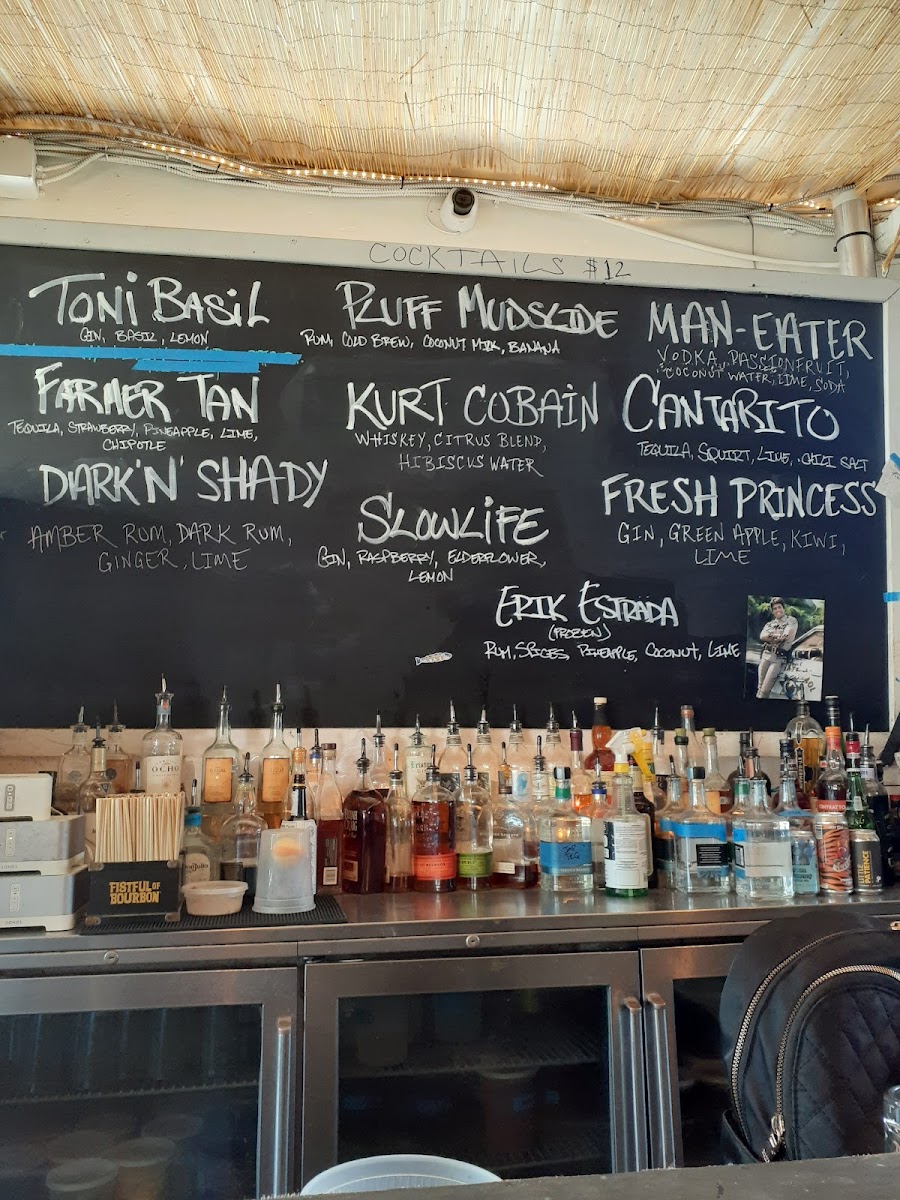 COCKTAILS $12
TONI BASIL
GIN, BASIL, LEMON
PLUFF MUDSLIDE
RUM, COLD BREW, COCONUT MILK, BANANA
MAN-EATER
VODKA, PASSIONFRUIT,
COCONUT WATER, LIME, SODA
FARMER TAN
TEQUILA, STRAWBERRY, PINEAPPLE, LIME,
CHIPOTLE
KURT COBAIN
WHISKEY, CITRUS BLEND,
HIBISCUS WATER
CANTARITO
TEQUILA, SQUIRT, LIME, CHILI SALT
DARK 'N' SHADY
AMBER RUM, DARK RUM,
GINGER, LIME
SLOWLIFE
GIN, RASPBERRY, ELDERFLOWER,
LEMON
FRESH PRINCESS
GIN, GREEN APPLE, KIWI,
LIME
ERIK ESTRADA
(FROZEN)
RUM, SPICES, PINEAPPLE, COCONUT, LIME
OCHO
FISTFUL OF
BOURBON